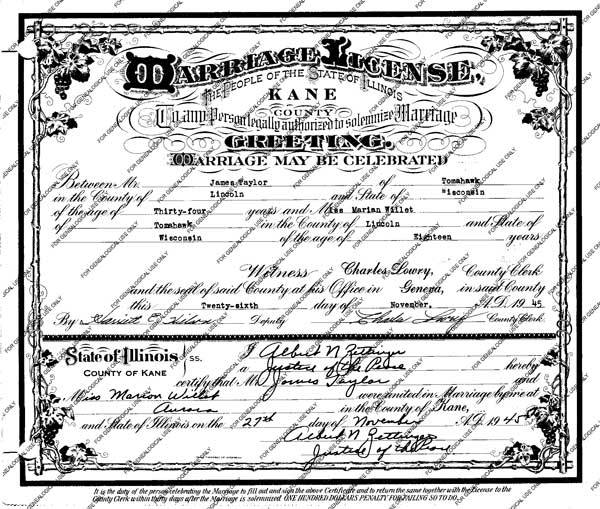 MARRIAGE LICENSE,
THE PEOPLE OF THE STATE OF ILLINOIS
KANE
COUNTY
To any Person legally authorized to solemnize Marriage
GREETING.
MARRIAGE MAY BE CELEBRATED
Between Mr. James Taylor of Tomahawk
in the County of Lincoln and State of Wisconsin
of the age of Thirty-four years and Miss Marian Willet
of Tomahawk in the County of Lincoln and State of
Wisconsin of the age of Eighteen years
Witness Charles Lowry, County Clerk
and the seal of said County at his Office in Geneva, in said County
this Twenty-sixth day of November, A.D. 1945
By Deputy County Clerk
State of Illinois ss. I Albert N.
COUNTY OF KANE a Justice of the Peace hereby
certify that Mr James Taylor and
Miss Marion Willet were united in Marriage by me at
Aurora in the County of Kane,
and State of Illinois on the 27th day of November A.D. 1945
Albert N.
Justice of the Peace
It is the duty of the person celebrating the Marriage to fill out and sign the above Certificate and to return the same together with the License to the
County Clerk within thirty days after the Marriage is solemnized ONE HUNDRED DOLLARS PENALTY FOR FAILING SO TO DO.
FOR GENEALOGICAL USE ONLY